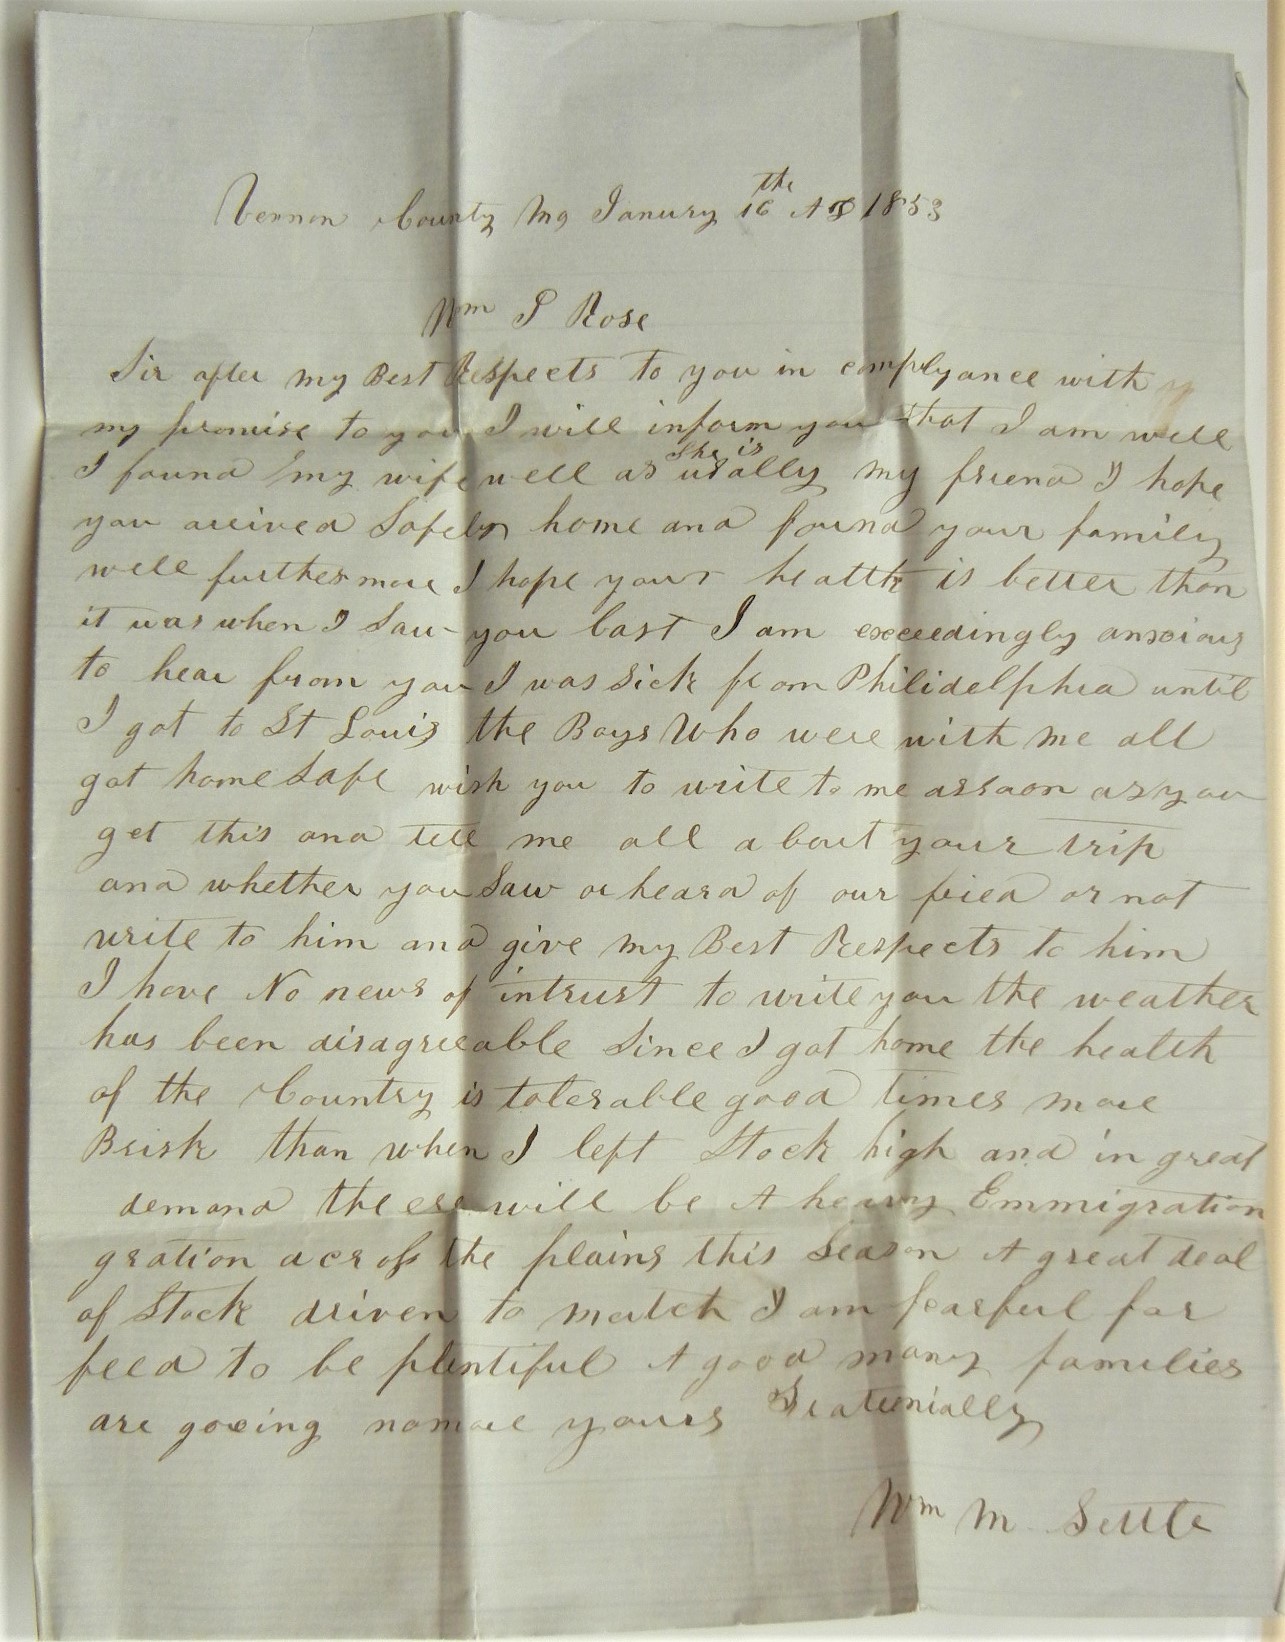 Vernon County Mo Janury 16th AD 1853
Wm P Rose
Sir after my Best Respects to you in complyance with
my promise to you I will inform you that I am well
I found my wife well as she is usally my friend I hope
you arived Safely home and found your family
well furthermore I hope your health is better than
it was when I Saw you last I am exceedingly anxious
to hear from you I was Sick from Philidelphia until
I got to St Louis the Boys Who were with me all
got home Safe wish you to write to me assoon as you
get this and tell me all about your trip
and whether you Saw or heard of our fried or not
write to him and give my Best Respects to him
I have No news of intrust to write you the weather
has been disagreeable Since I got home the health
of the Country is tolerable good times more
Brisk than when I left Stock high and in great
demand theere will be A heavy Emmigration
gration across the plains this Season A great deal
of Stock driven to match I am fearful for
feed to be plentiful A good many families
are goeing nomore yours
Wm M Settle